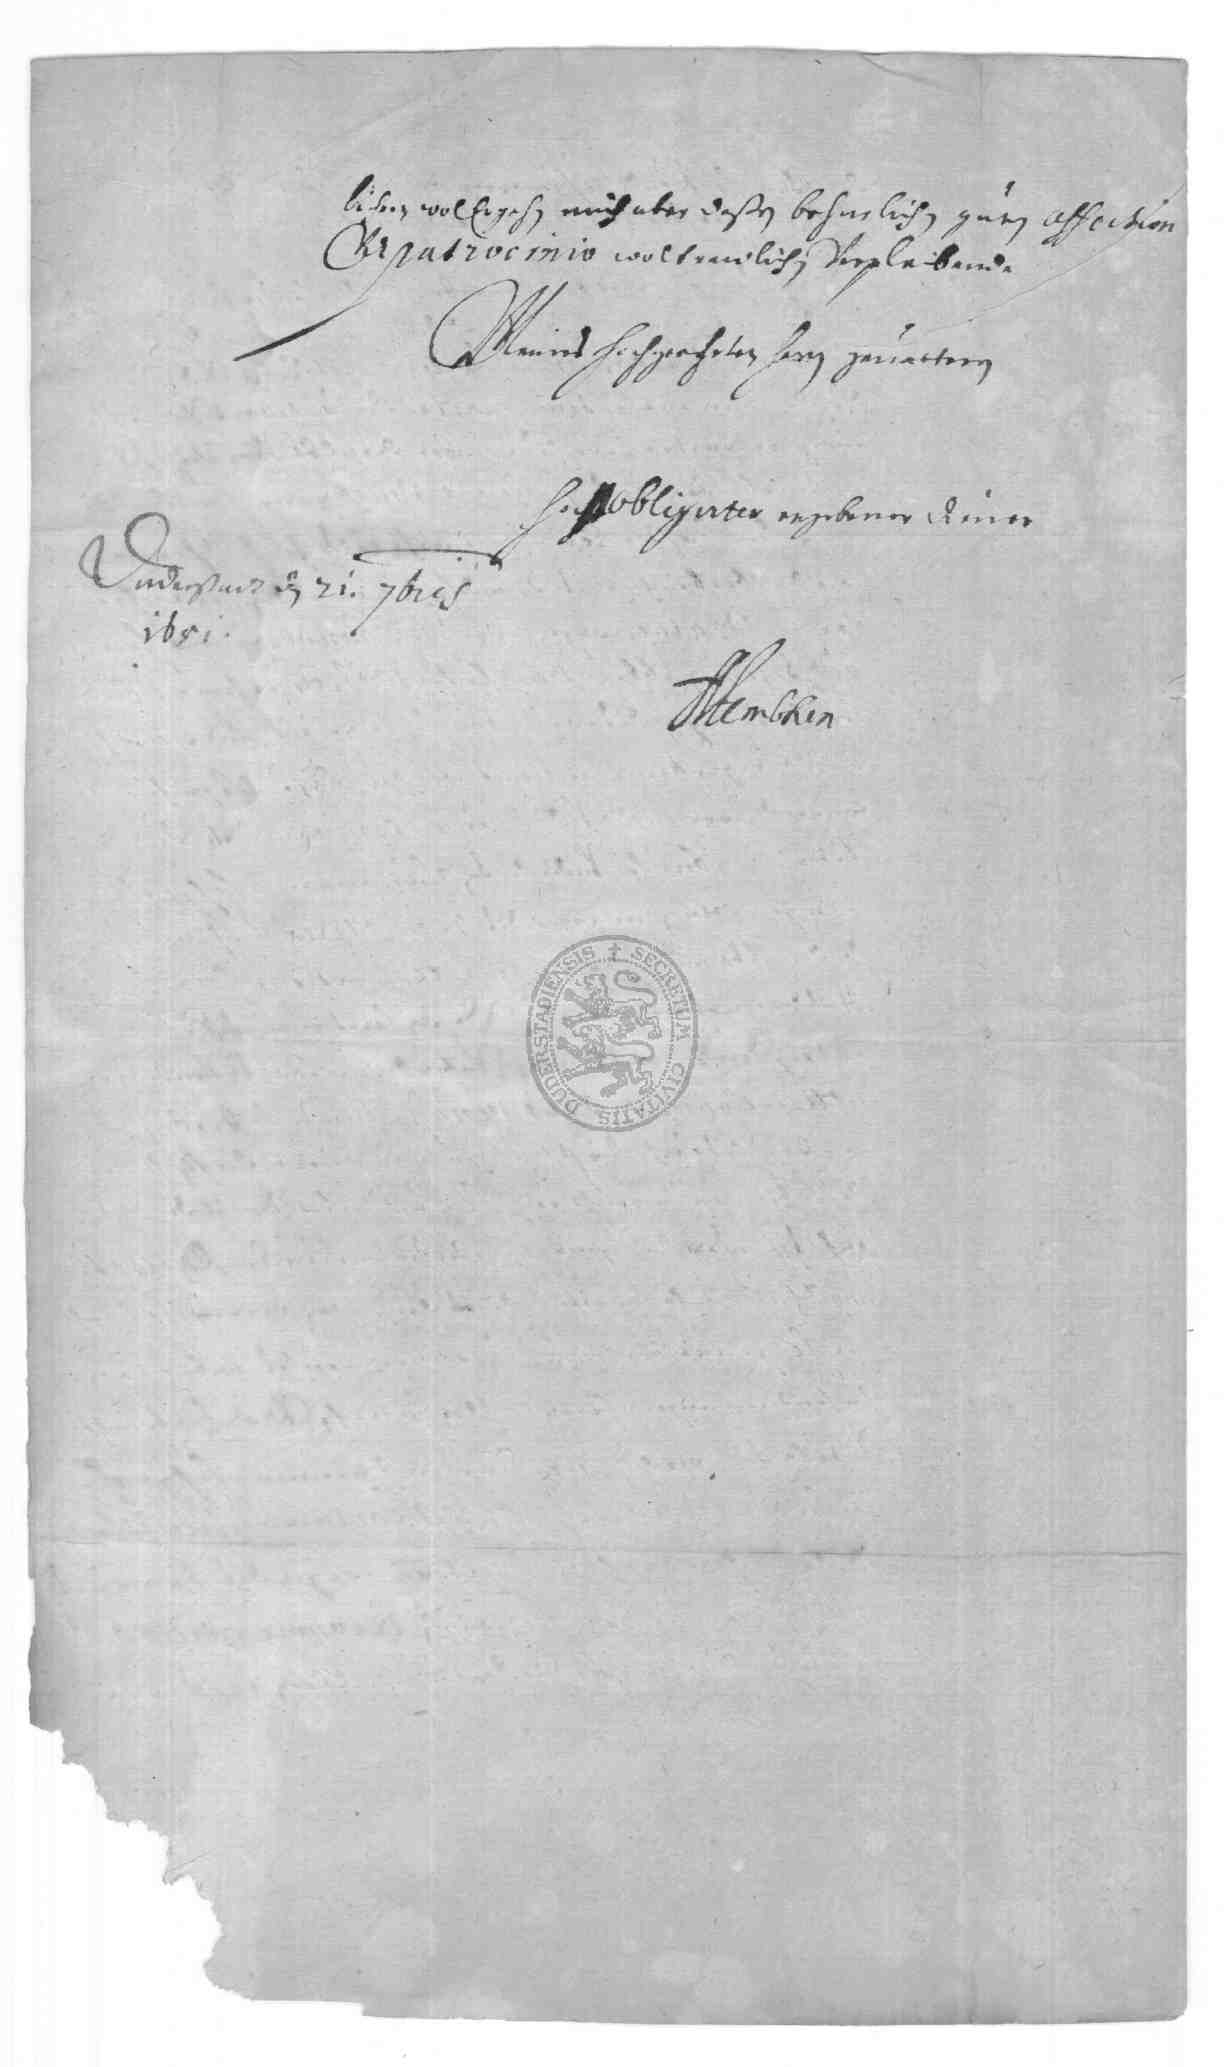 lichen wolErgehen mich aber deßen beharlichen guten affection
& patrocinio wol verpleibende
Meines hochgeachten hern gevattern
hochobligirter ergebener diener
Duderstadt den 21. 7bris
1651.
SECRETUM CIVITATIS DUDERSTADIENSIS